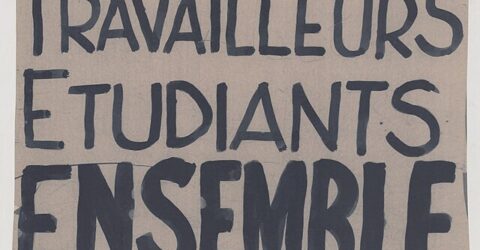 TRAVAILLEURS
ETUDIANTS
ENSEMBLE